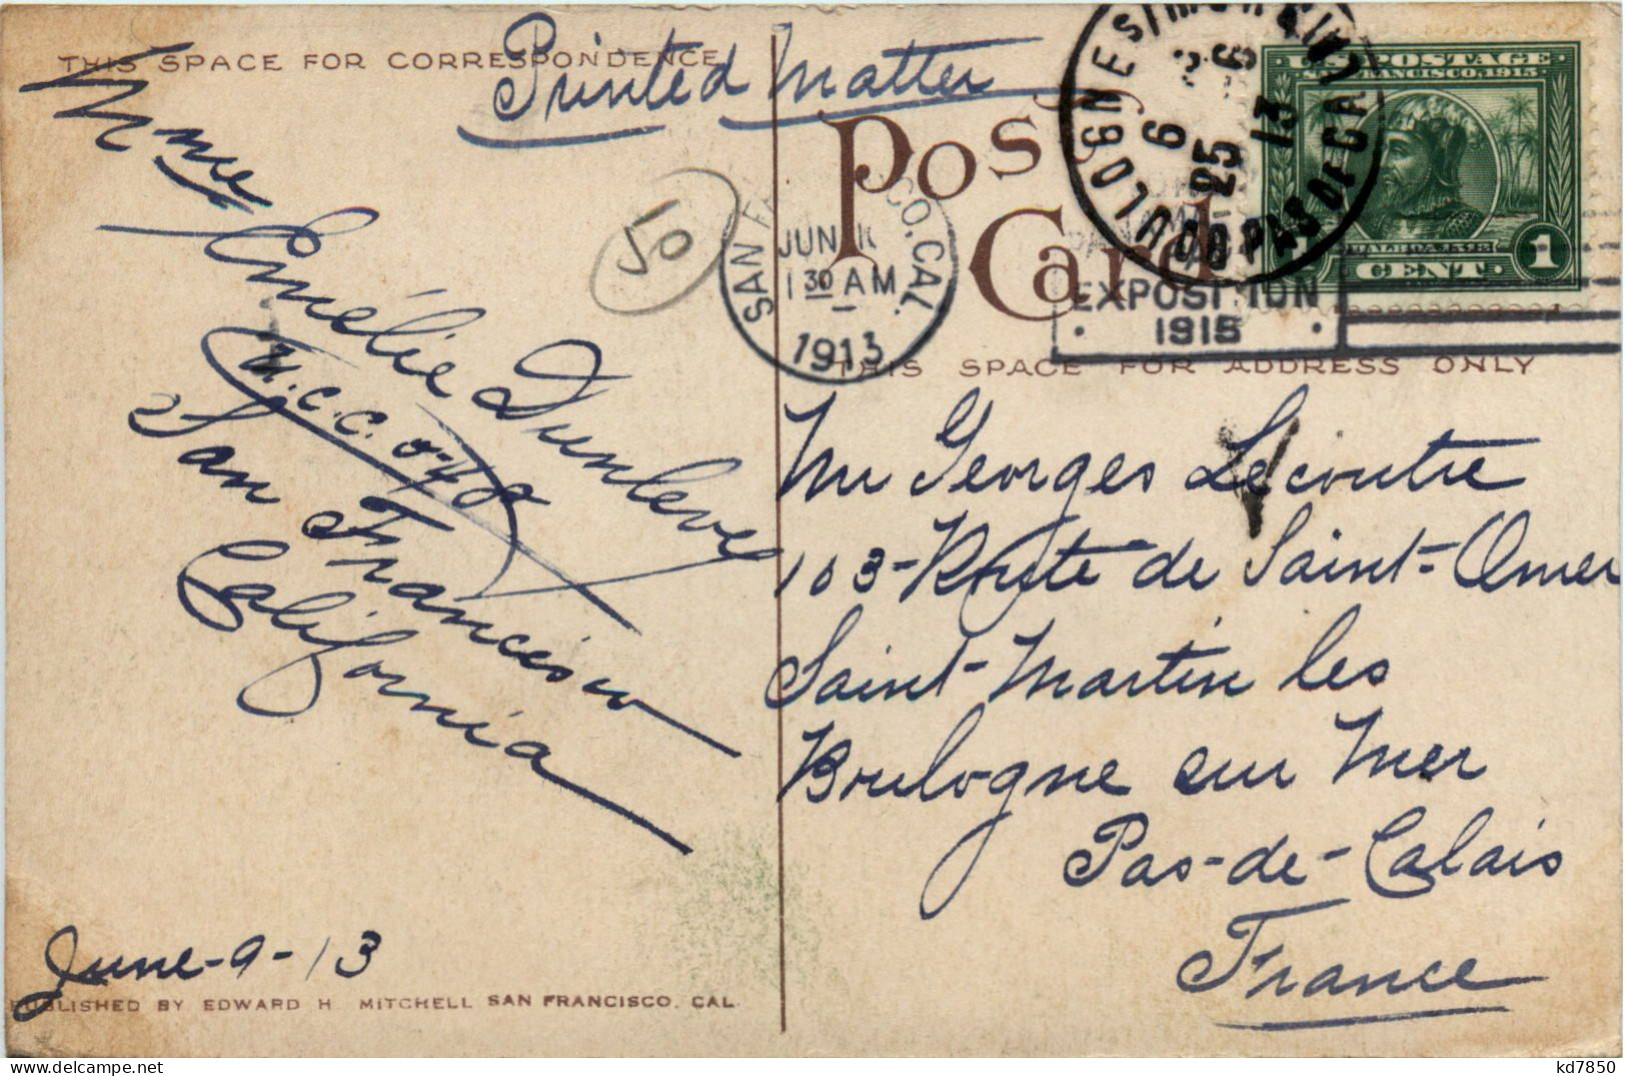 THIS SPACE FOR CORRESPONDENCE
Printed Matter
Mme
Emélie Dunleve
U.C.C. 0-48
San Francisco
California
June-9-13
PUBLISHED BY EDWARD H. MITCHELL SAN FRANCISCO, CAL.
50
SAN CO, CAL.
JUN
1 30 AM
1913
Post
Card
EXPOSITION
1915
BOULOGNE S/MER
6 25
6 13
PAS DE CAL
U.S. POSTAGE
SAN FRANCISCO, 1915
BALBOA, 1513
1 CENT 1
THIS SPACE FOR ADDRESS ONLY
Mr Georges Lecoutre
103-Route de Saint-Omer
Saint-Martin les
Boulogne sur Mer
Pas-de-Calais
France
kd7850